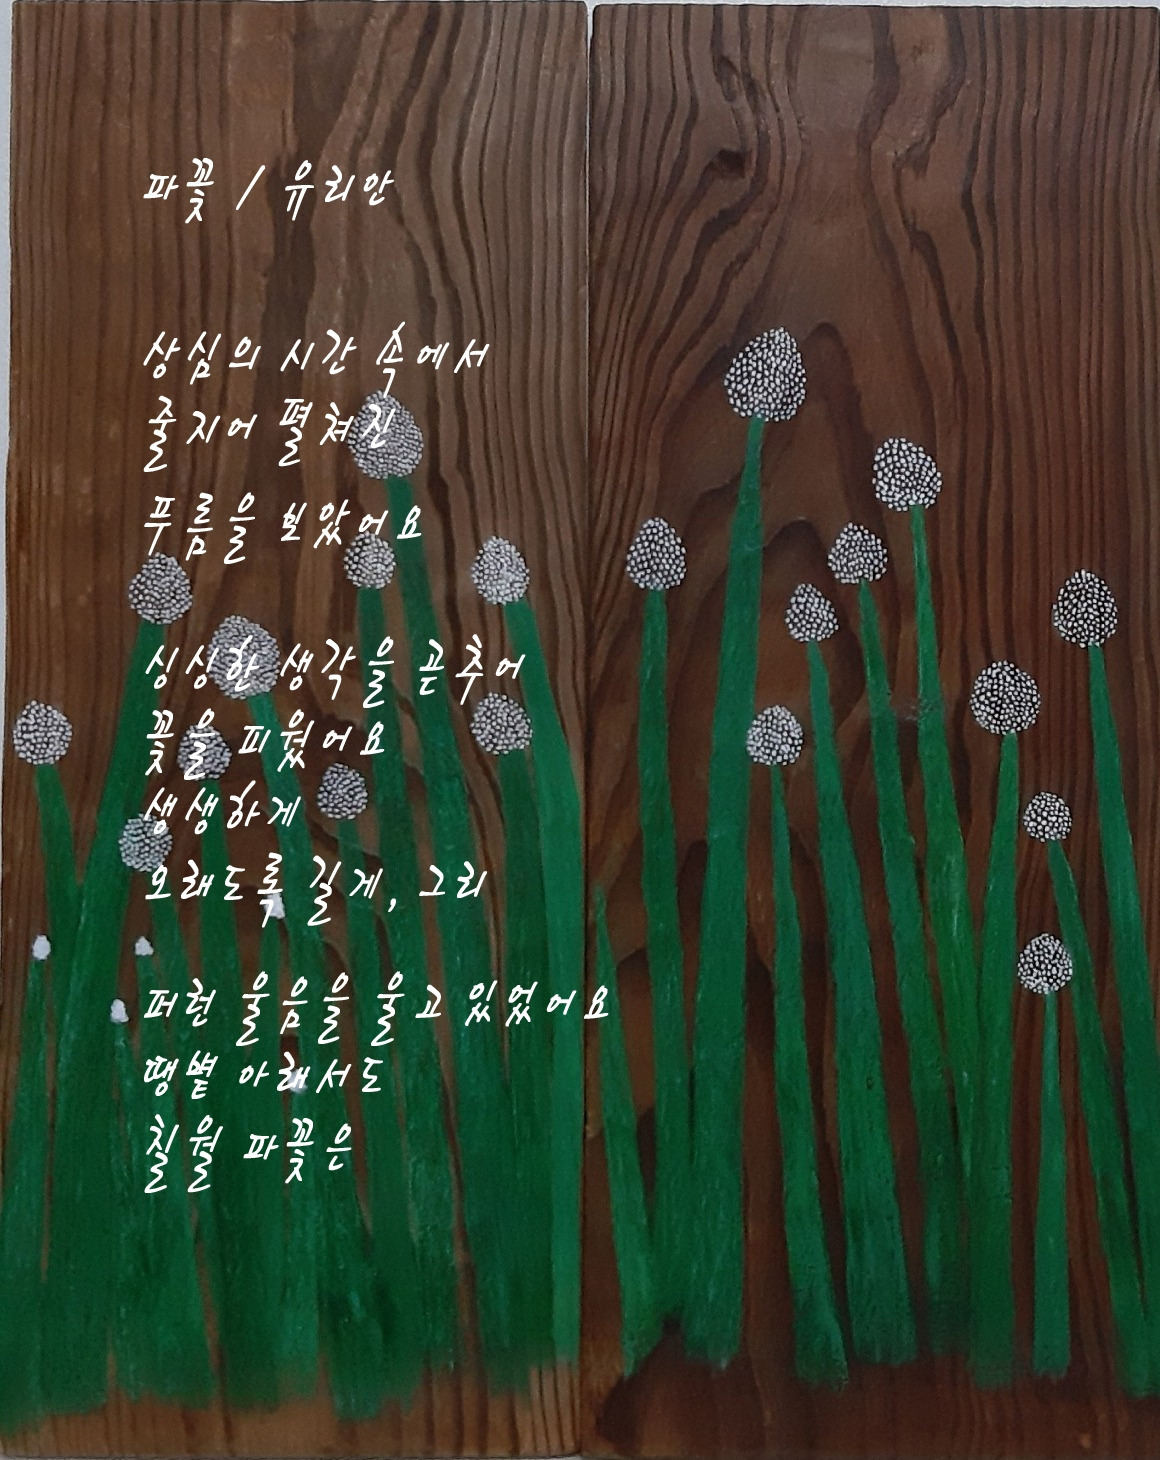 파꽃 / 유리안
상심의 시간 속에서
줄지어 펼쳐진
푸름을 보았어요
싱싱한 생각을 곧추어
꽃을 피웠어요
생생하게
오래도록 길게, 그리
퍼런 울음을 울고 있었어요
땡볕 아래서도
칠월 파꽃은